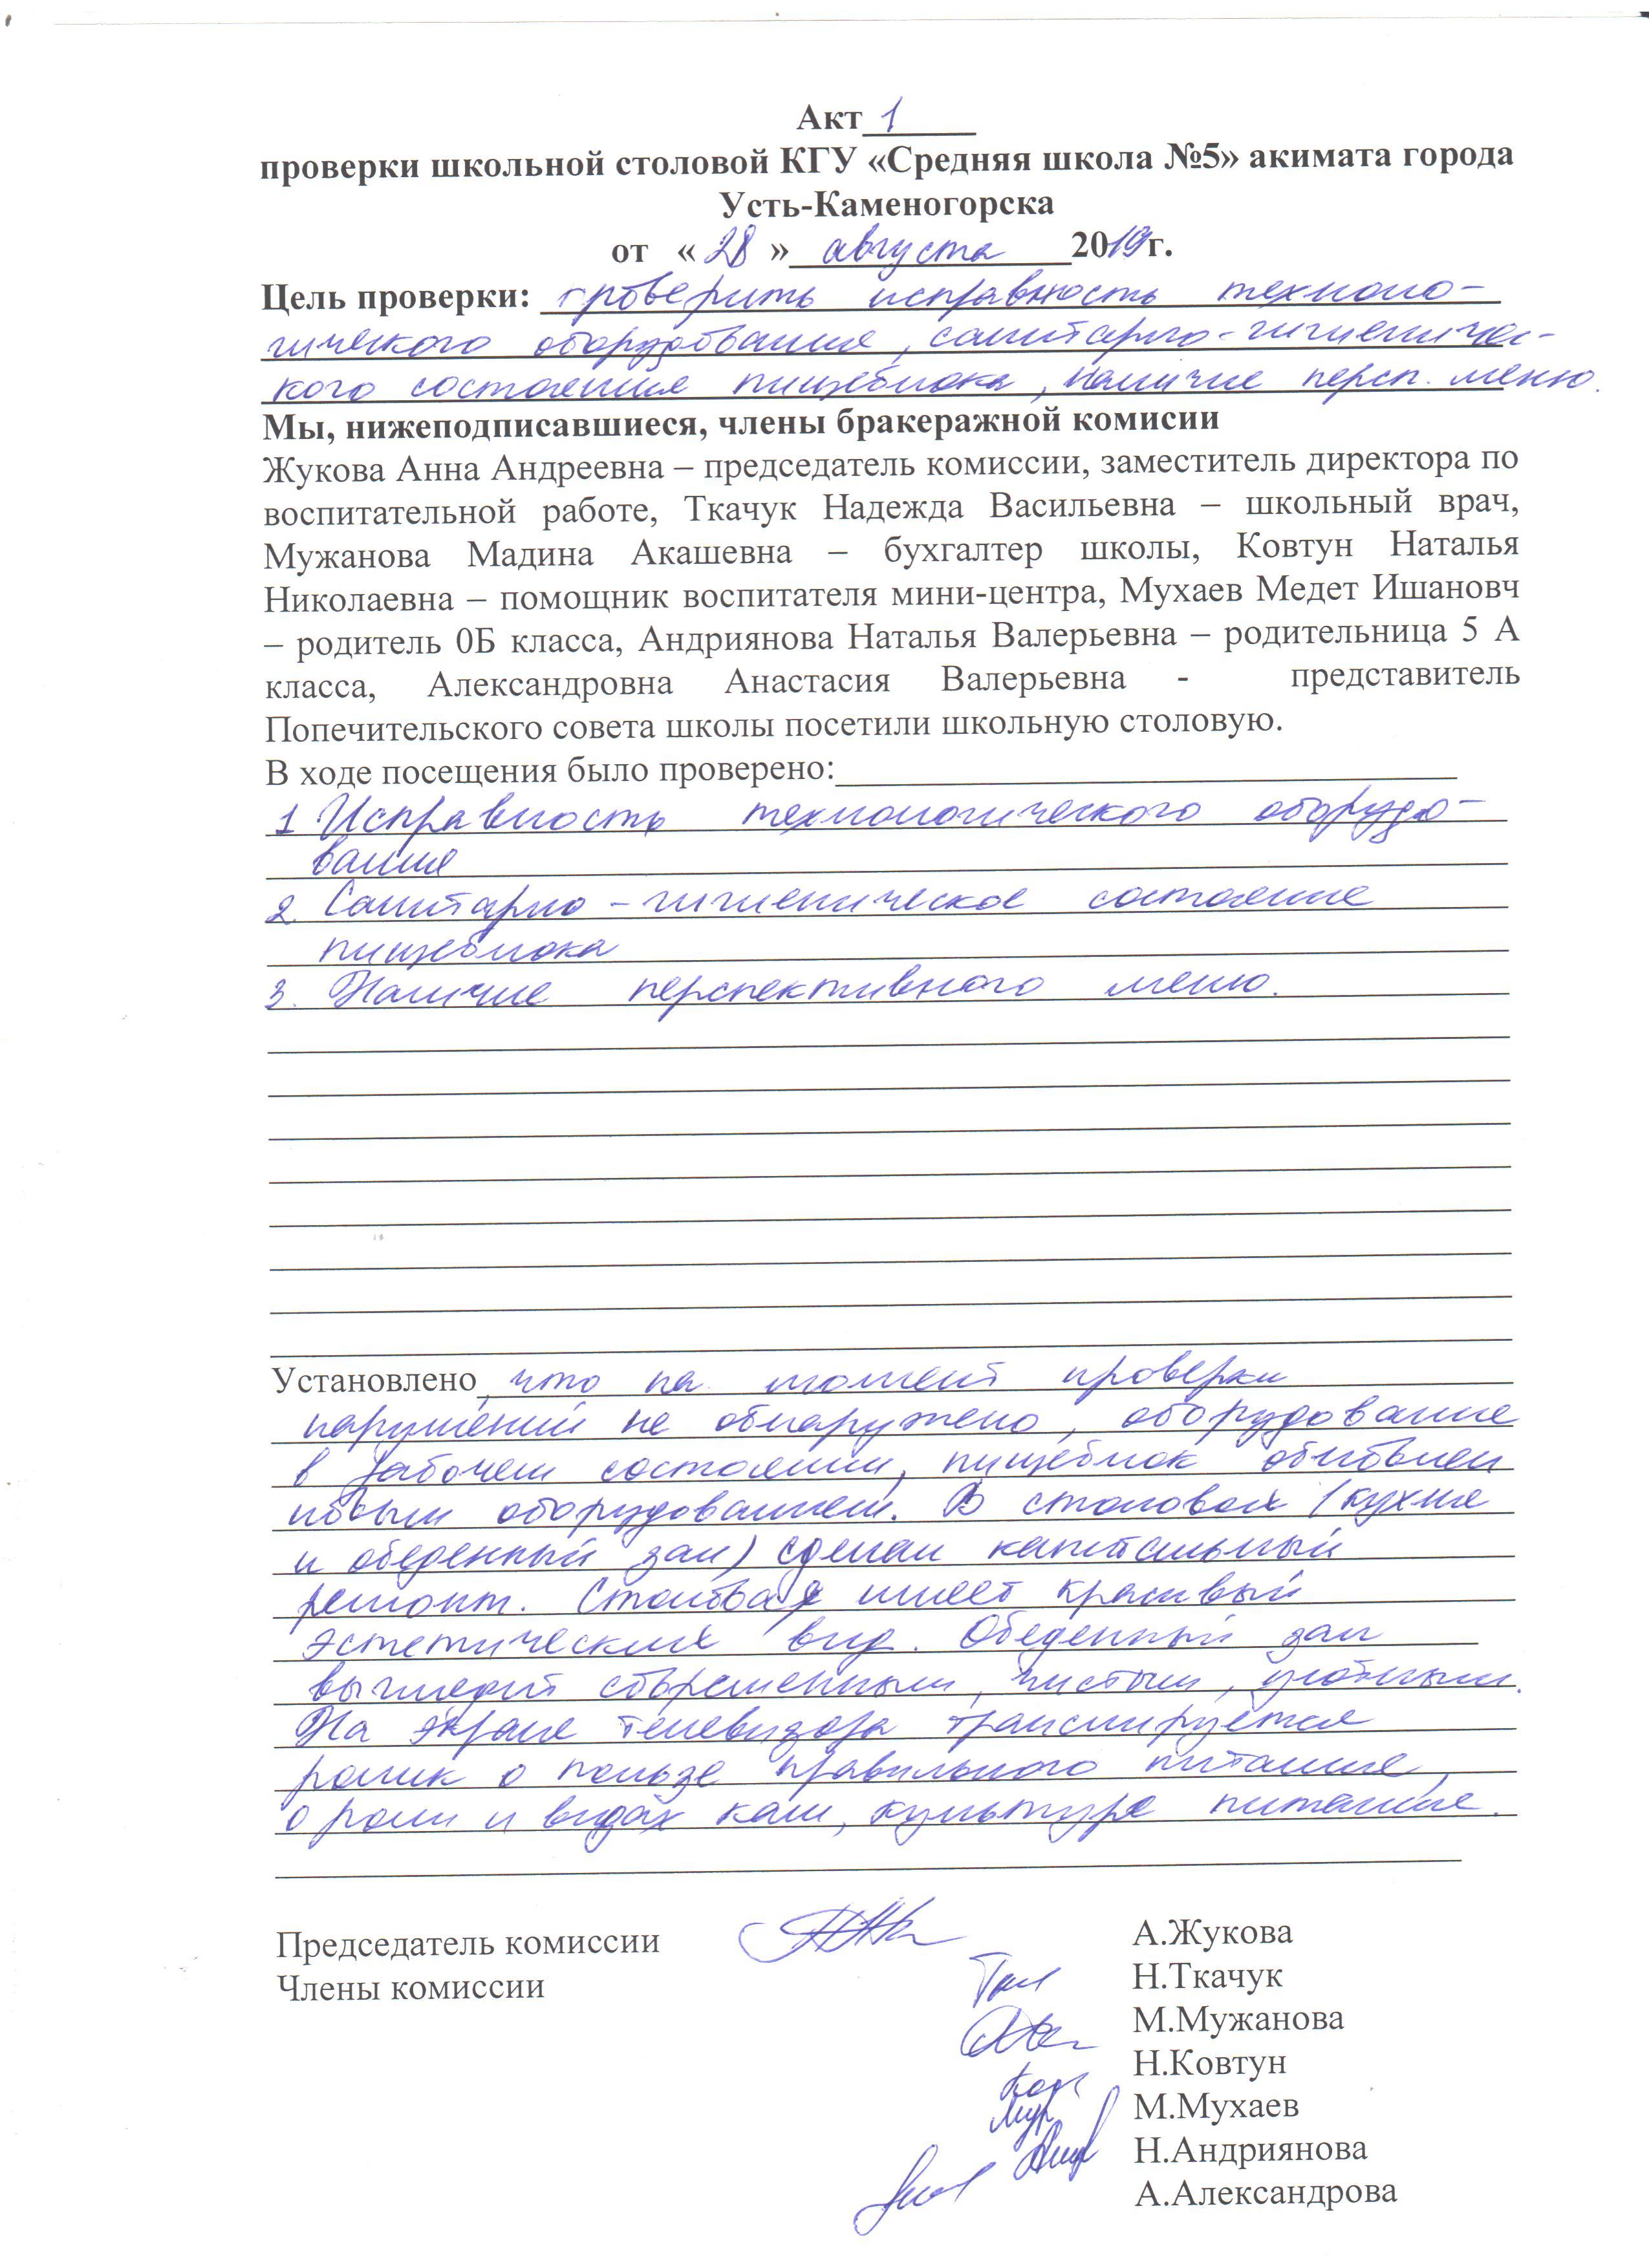 Акт 1
проверки школьной столовой КГУ «Средняя школа №5» акимата города
Усть-Каменогорска
от « 28 » августа 2019 г.
Цель проверки: проверить исправность техноло-
гического оборудования, санитарно-гигиеничес-
кого состояния пищеблока, наличие персп. меню.
Мы, нижеподписавшиеся, члены бракеражной комисии
Жукова Анна Андреевна – председатель комиссии, заместитель директора по
воспитательной работе, Ткачук Надежда Васильевна – школьный врач,
Мужанова Мадина Акашевна – бухгалтер школы, Ковтун Наталья
Николаевна – помощник воспитателя мини-центра, Мухаев Медет Ишановч
– родитель 0Б класса, Андриянова Наталья Валерьевна – родительница 5 А
класса, Александровна Анастасия Валерьевна - представитель
Попечительского совета школы посетили школьную столовую.
В ходе посещения было проверено:
1 Исправность технологического оборудо-
вания
2. Санитарно-гигиеническое состояние
пищеблока
3. Наличие перспективного меню.
Установлено, что на момент проверки
нарушений не обнаружено, оборудование
в рабочем состоянии, пищеблок обновлен
новым оборудованием. В столовой (кухня
и обеденный зал) сделан капитальный
ремонт. Столовая имеет красивый
эстетический вид. Обеденный зал
выглядит современным, чистым, уютным.
На экране телевизора транслируется
ролик о пользе правильного питания,
о роли и видах каш, культуре питания.
Председатель комиссии А.Жукова
Члены комиссии Н.Ткачук
М.Мужанова
Н.Ковтун
М.Мухаев
Н.Андриянова
А.Александрова